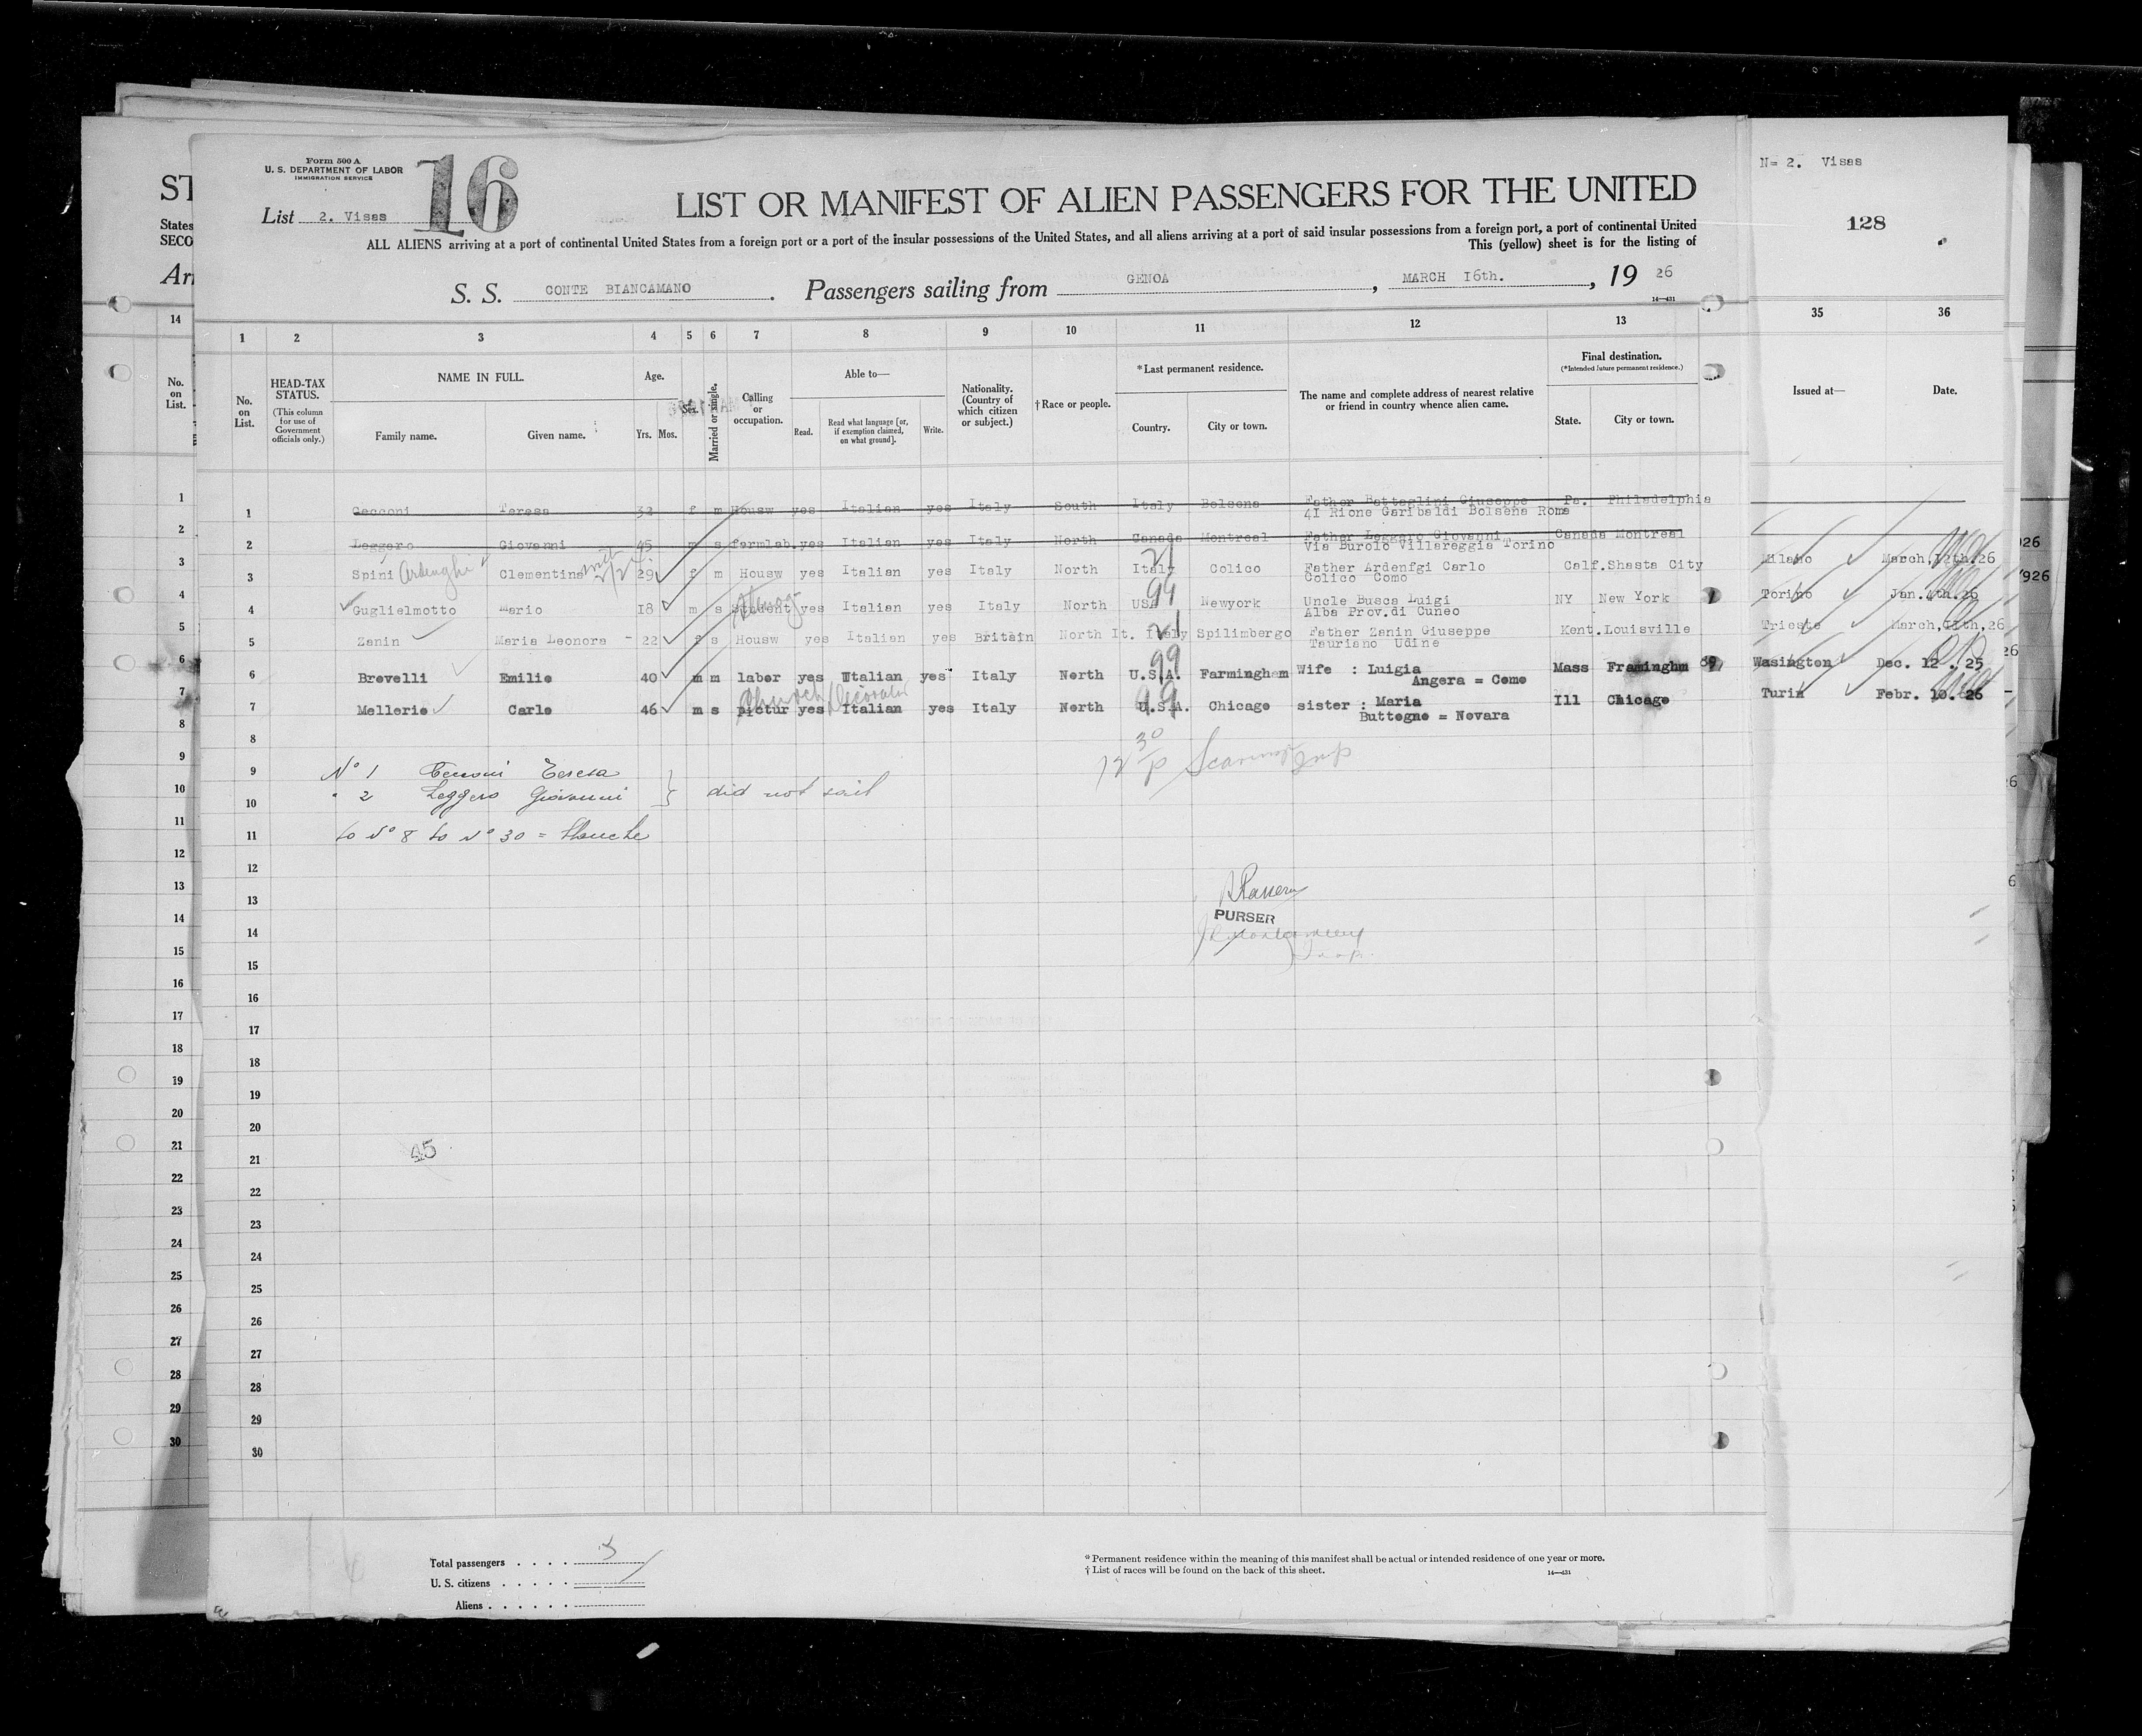 Form 500 A
U. S. DEPARTMENT OF LABOR
IMMIGRATION SERVICE
16
List 2. Visas
LIST OR MANIFEST OF ALIEN PASSENGERS FOR THE UNITED
ALL ALIENS arriving at a port of continental United States from a foreign port or a port of the insular possessions of the United States, and all aliens arriving at a port of said insular possessions from a foreign port, a port of continental United
This (yellow) sheet is for the listing of
S. S. CONTE BIANCAMANO. Passengers sailing from GENOA, MARCH 16th., 19 26
14—431
N= 2. Visas
128
ST
States
SECO
Arr
14
No. on List.
1 2 3 4 5 6 7 8 9 10 11 12 13 35 36
No. on List.
HEAD-TAX STATUS.
(This column for use of Government officials only.)
NAME IN FULL.
Family name. Given name.
Age.
Yrs. Mos.
Sex.
Married or single.
Calling or occupation.
Able to—
Read. Read what language [or, if exemption claimed, on what ground]. Write.
Nationality. (Country of which citizen or subject.)
†Race or people.
*Last permanent residence.
Country. City or town.
The name and complete address of nearest relative or friend in country whence alien came.
Final destination.
(*Intended future permanent residence.)
State. City or town.
Issued at— Date.
1 Cecconi Teresa 32 f m Housw yes Italian yes Italy South Italy Bolsena Father Battaglini Giuseppe Pa. Philadelphia
41 Rione Garibaldi Bolsena Rome
2 Leggero Giovanni 45 m s farmlab. yes Italian yes Italy North Canada Montreal Father Leggero Giovanni Canada Montreal
Via Burolo Villareggia Torino
3 Spini Ardenghi Clementina 29 f m Housw yes Italian yes Italy North Italy 21 Colico Father Ardenfgi Carlo Calf. Shasta City Milano March,12th.26
Colico Como
4 Guglielmotto Mario 18 m s Student yes Italian yes Italy North USA 99 Newyork Uncle Busca Luigi NY New York Torino Jan.4th.26
Alba Prov.di Cuneo
5 Zanin Maria Leonora 22 f s Housw yes Italian yes Britain North It. Italy 21 Spilimbergo Father Zanin Giuseppe Kent. Louisville Trieste March,11th,26
Tauriano Udine
6 Brovelli Emilio 40 m m labor yes Italian yes Italy North U.S.A. 99 Farmingham Wife : Luigia Mass Framinghm Wasington Dec. 12 . 25
Angera = Como
7 Mellerio Carlo 46 m s pictur Church Decorator yes Italian yes Italy North U.S.A. 99 Chicago sister : Maria Ill Chicago Turin Febr. 10. 26
Buttogno = Novara
8
9 N° 1 Cecconi Teresa
10 " 2 Leggero Giovanni } did not sail
11 to N° 8 to N° 30 = Blanche
12
13
PURSER
14
15
16
17
18
19
20
21
45
22
23
24
25
26
27
28
29
30
Total passengers . . . . 5
U. S. citizens . . . . .
Aliens . . . . . .
* Permanent residence within the meaning of this manifest shall be actual or intended residence of one year or more.
† List of races will be found on the back of this sheet.
14—431